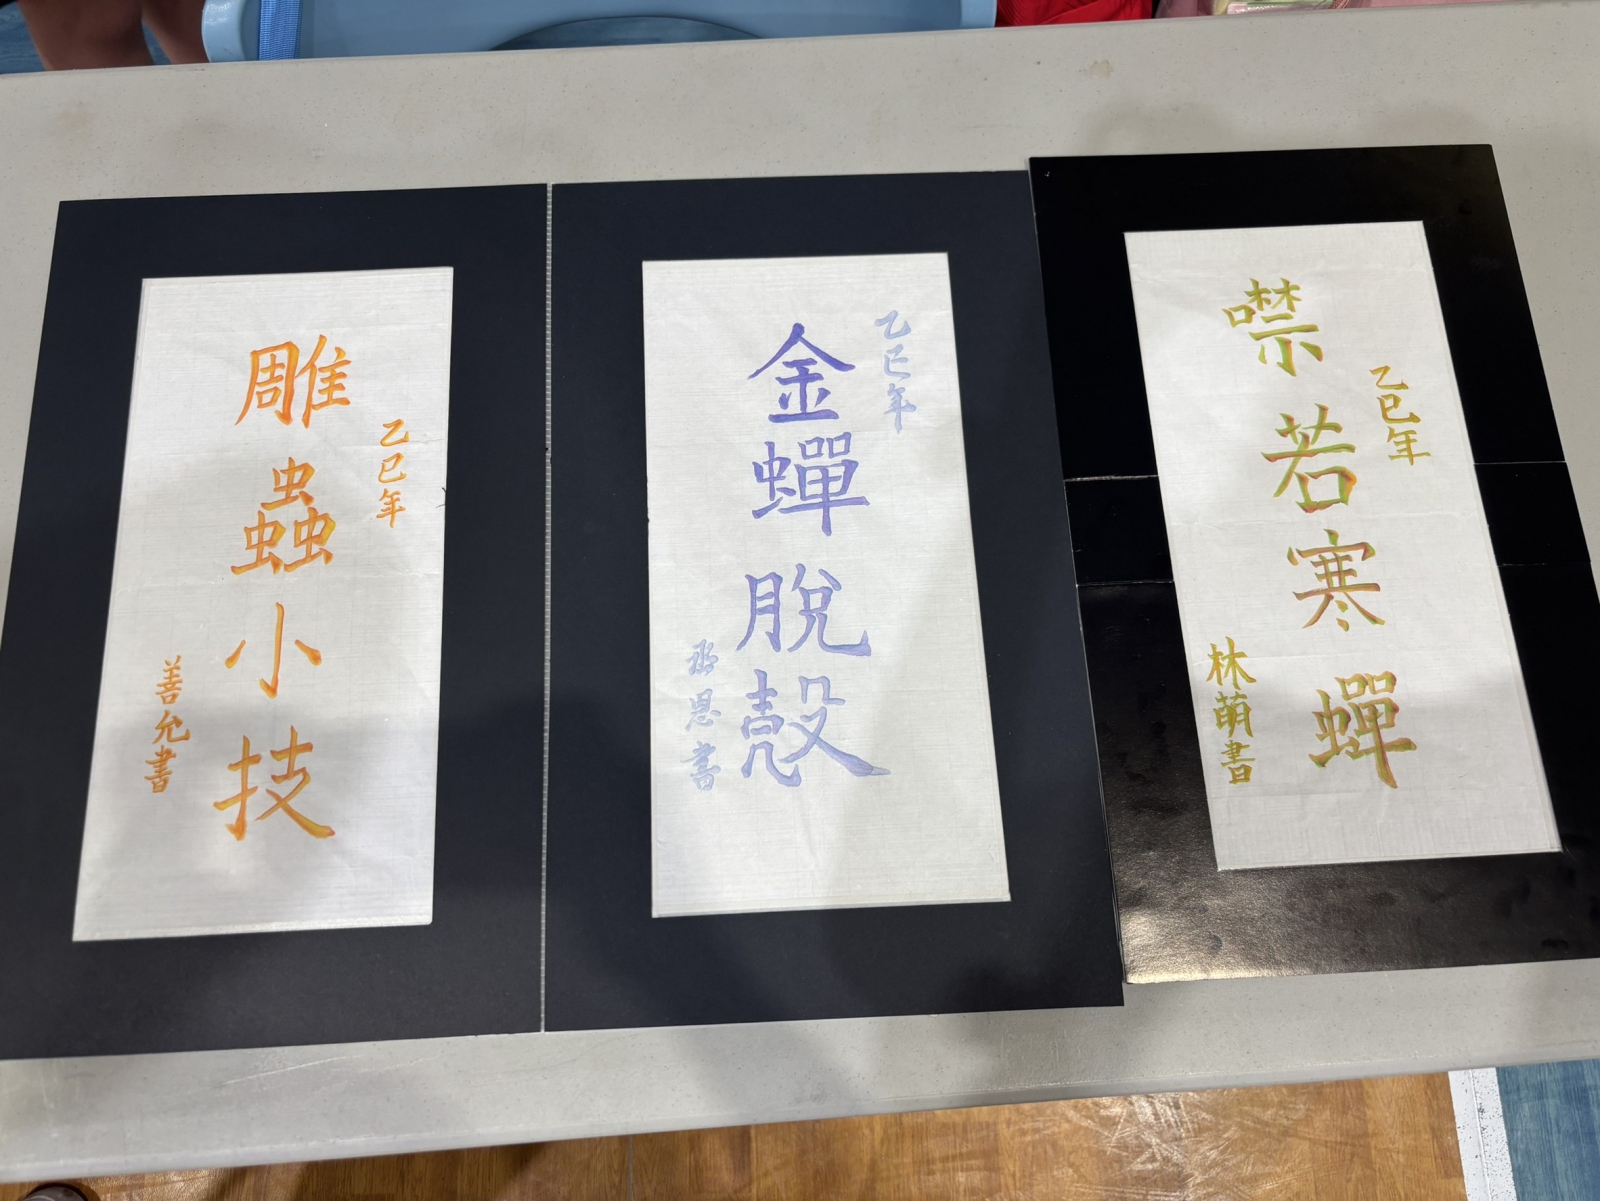 乙巳年
雕蟲小技
善允書
乙巳年
金蟬脫殼
承恩書
乙巳年
噤若寒蟬
林萌書